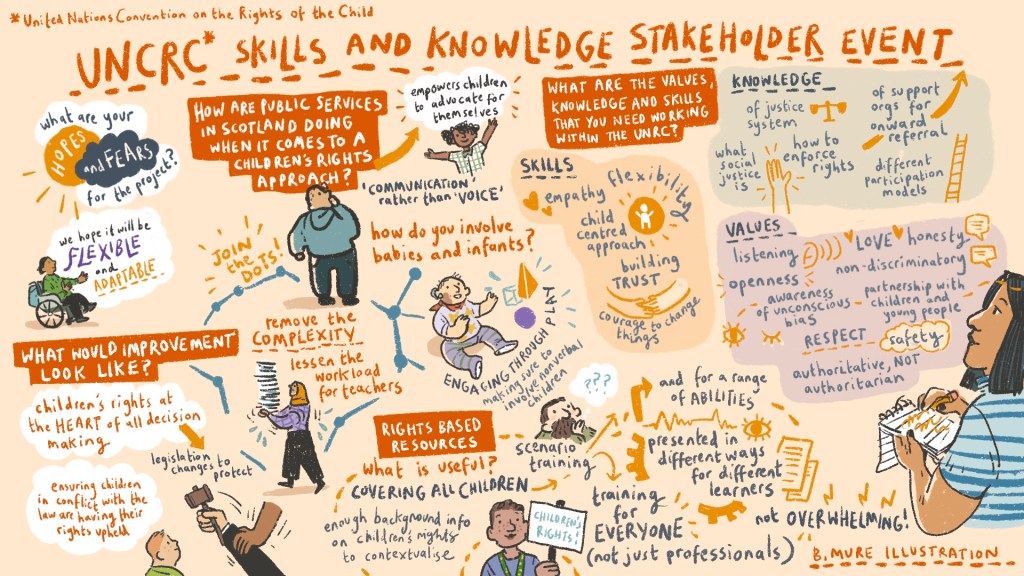 *United Nations Convention on the Rights of the Child
UNCRC* SKILLS AND KNOWLEDGE STAKEHOLDER EVENT
what are your
HOPES
and FEARS
for the project?
we hope it will be
FLEXIBLE
and
ADAPTABLE
HOW ARE PUBLIC SERVICES
IN SCOTLAND DOING
WHEN IT COMES TO A
CHILDREN'S RIGHTS
APPROACH?
empowers children
to advocate for
themselves
'COMMUNICATION'
rather than 'VOICE'
JOIN
the
DOTS!
how do you involve
babies and infants?
ENGAGING THROUGH PLAY
making sure to
involve nonverbal
children
remove the
COMPLEXITY
lessen the
workload
for teachers
WHAT WOULD IMPROVEMENT
LOOK LIKE?
children's rights at
the HEART of all decision
making
legislation
changes to
protect
ensuring children
in conflict with the
law are having their
rights upheld
WHAT ARE THE VALUES,
KNOWLEDGE AND SKILLS
THAT YOU NEED WORKING
WITHIN THE UNRC?
SKILLS
empathy
flexibility
child
centred
approach
building
TRUST
courage to change
things
KNOWLEDGE
of justice
system
of support
orgs for
onward
referral
what
social
justice
is
how to
enforce
rights
different
participation
models
VALUES
listening
LOVE
honesty
openness
non-discriminatory
awareness
of unconscious
bias
partnership with
children and
young people
RESPECT
safety
authoritative, NOT
authoritarian
RIGHTS BASED
RESOURCES
What is useful?
COVERING ALL CHILDREN
enough background info
on children's rights
to contextualise
CHILDREN'S
RIGHTS!
???
scenario
training
and for a range
of ABILITIES
presented in
different ways
for different
learners
training
for
EVERYONE
(not just professionals)
not OVERWHELMING!
B. MURE ILLUSTRATION